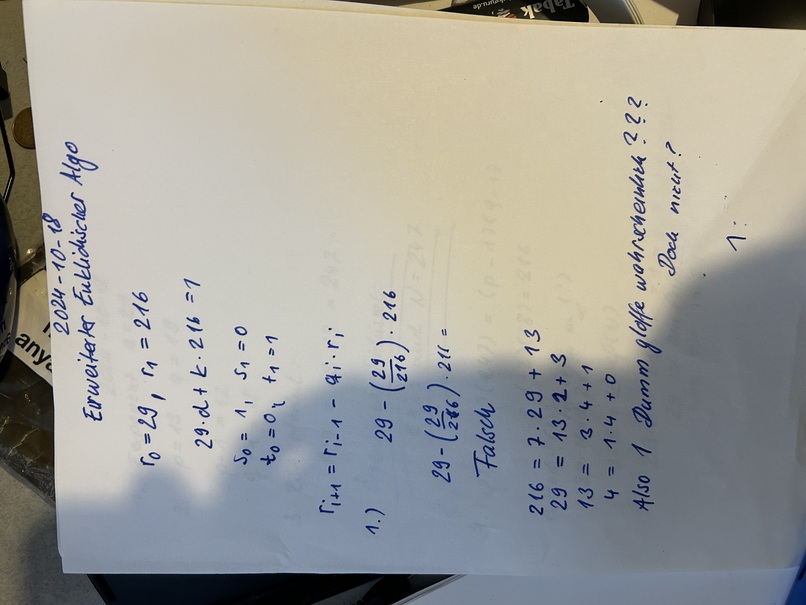 anya
2024-10-18
Eirweiterter Euklidischer Algo
r₀ = 29, r₁ = 216
29·d + k·216 = 1
s₀ = 1, s₁ = 0
t₀ = 0, t₁ = 1
rᵢ₊₁ = rᵢ₋₁ - qᵢ·rᵢ
1.) 29 - (29/216) · 216
29 - (29/216) · 216 =
Falsch
216 = 7·29 + 13
29 = 13·2 + 3
13 = 3·4 + 1
4 = 1·4 + 0
Also 1 Dumm gloffe wahrscheinlich ???
Doch nicht?
1:
Tabak